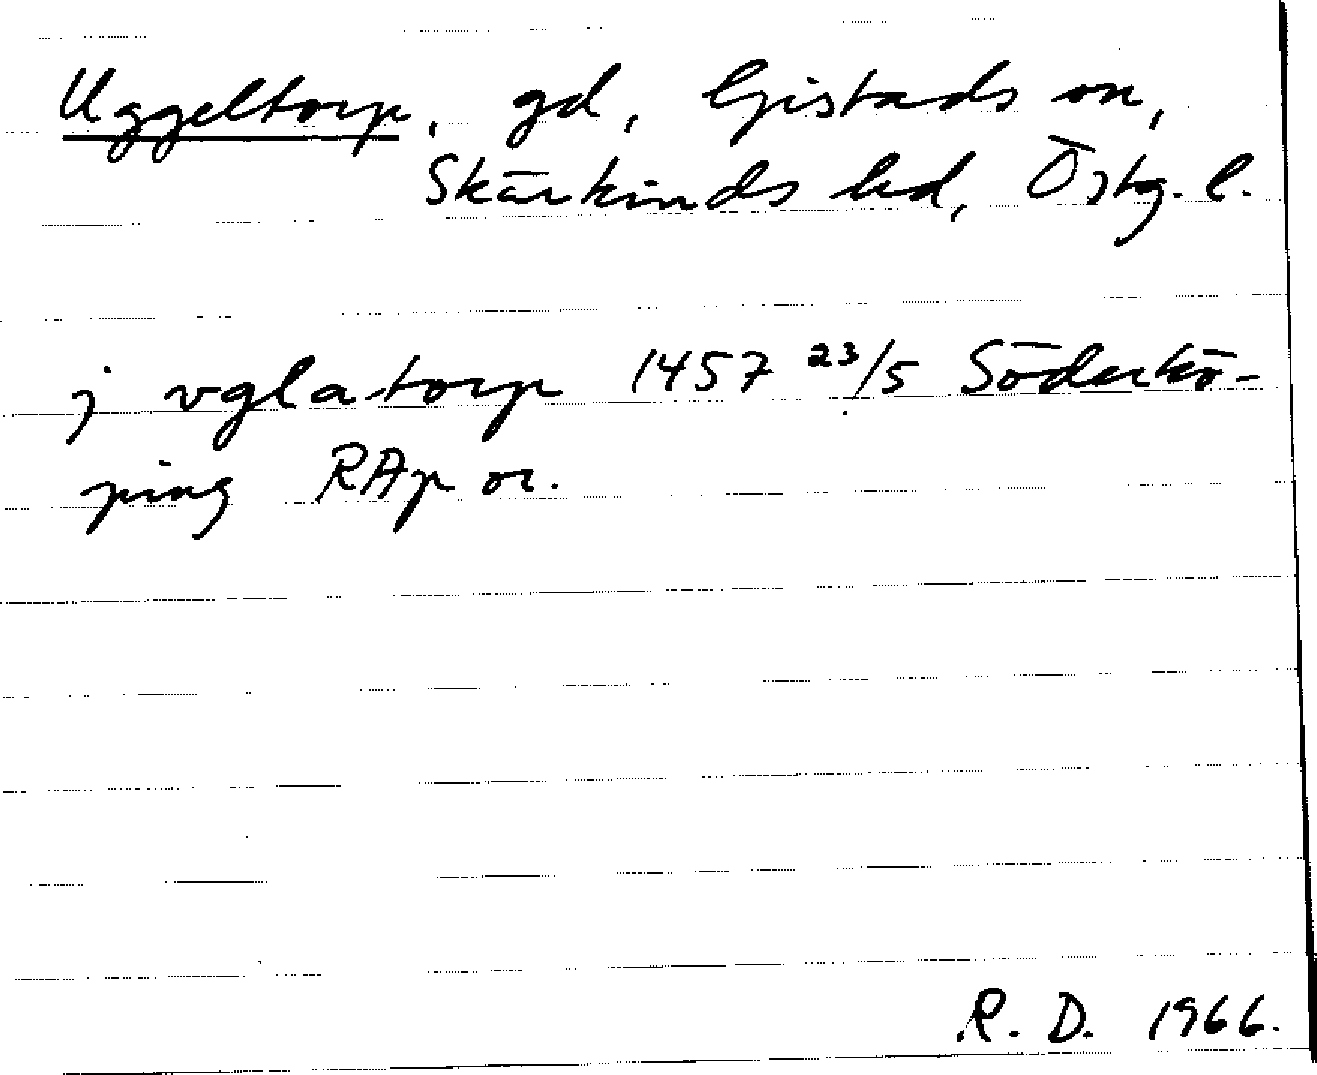 Uggeltorp, gd, Gistads sn,
Skärkinds hd, Östg. l.
j vgla torp 1457 23/5 Söderkö-
ping RAp or.
R. D. 1966.